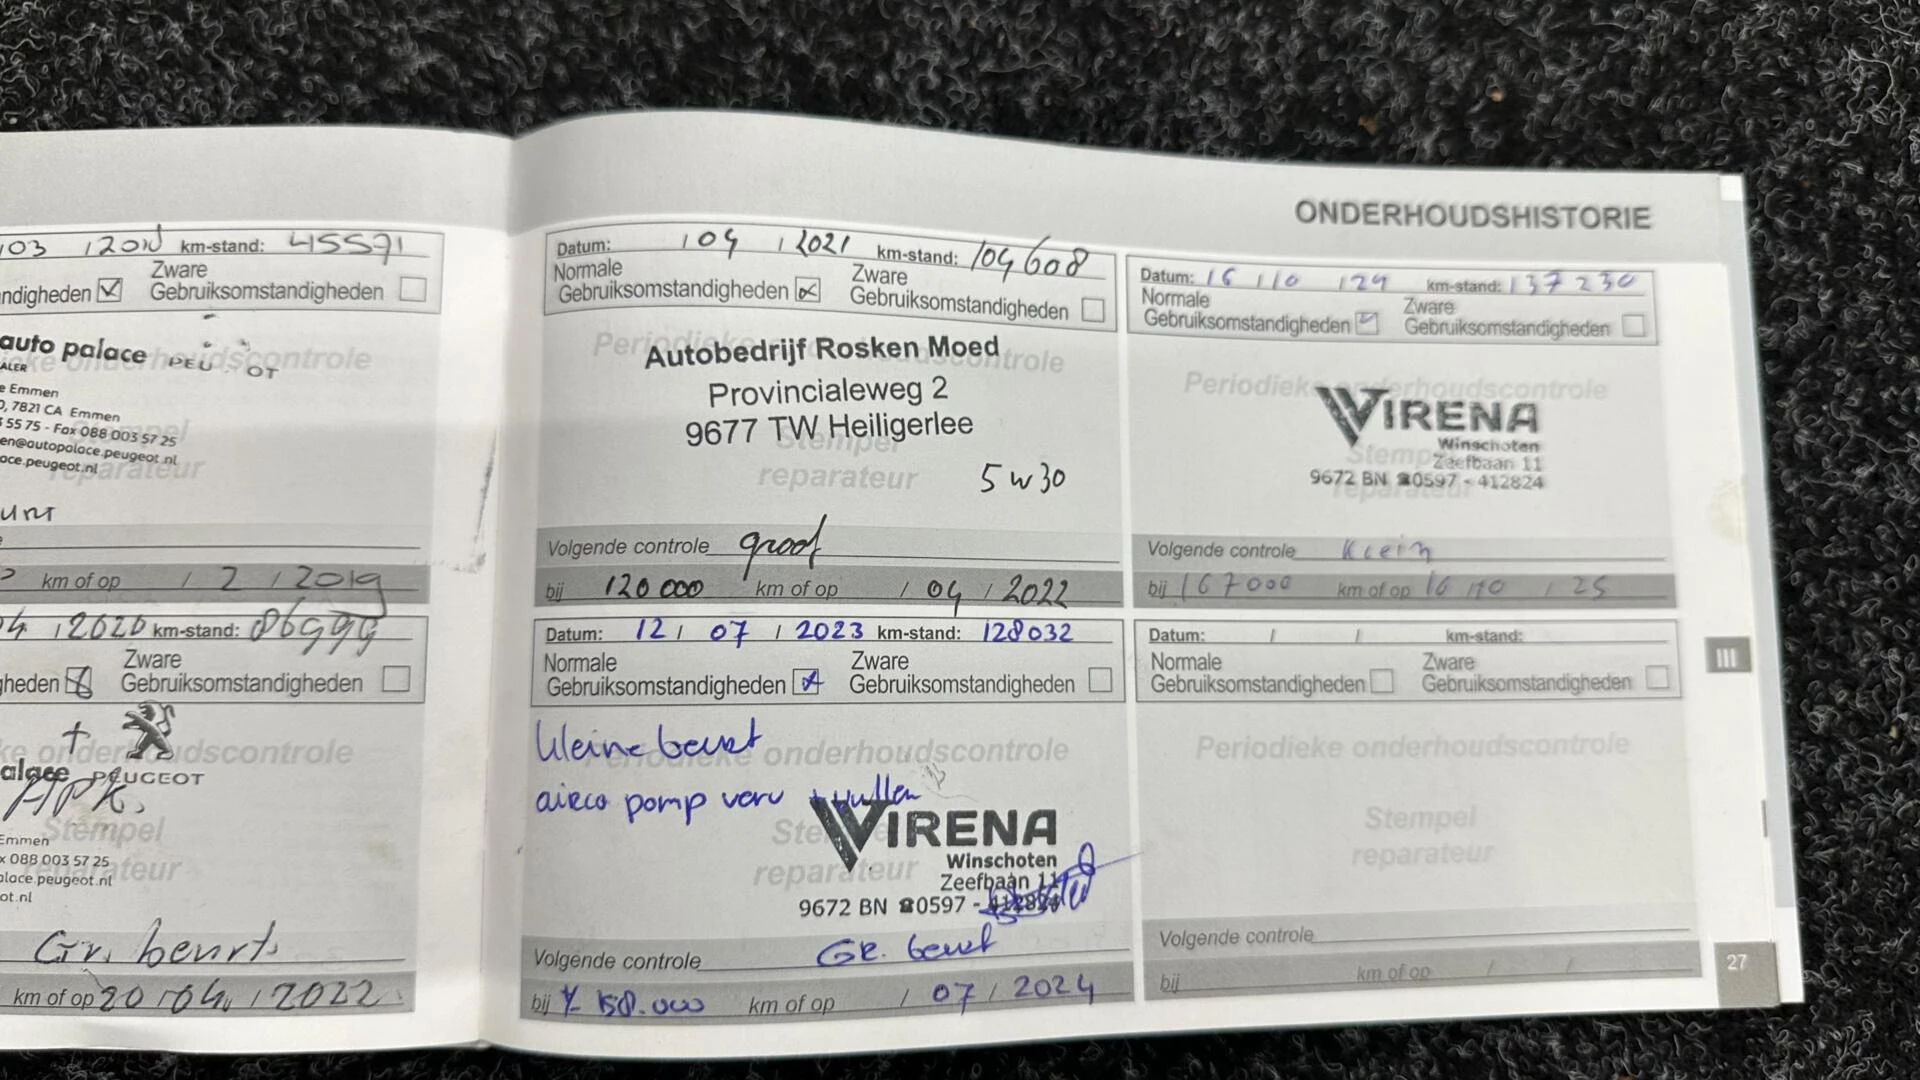 ONDERHOUDSHISTORIE
03 / 201 km-stand: 45591
ndigheden Zware
Gebruiksomstandigheden
auto palace PEU OT
ALER
e Emmen
0, 7821 CA Emmen
3 55 75 - Fax 088 003 57 25
en@autopalace.peugeot.nl
ace.peugeot.nl
km of op / 2 / 2019
04 / 2020 km-stand: 86999
gheden Zware
Gebruiksomstandigheden
ke onderhoudscontrole
alace PEUGEOT
APK.
Stempel
Emmen
x 088 003 57 25
reparateur
alace.peugeot.nl
ot.nl
Gr. beurt.
km of op 20 / 04 / 2022
Datum: / 04 / 2021 km-stand: 104608
Normale
Gebruiksomstandigheden
Zware
Gebruiksomstandigheden
Periodieke onderhoudscontrole
Autobedrijf Rosken Moed
Provincialeweg 2
9677 TW Heiligerlee
Stempel
reparateur
5w30
Volgende controle groot
bij 120 000 km of op / 04 / 2022
Datum: 12 / 07 / 2023 km-stand: 128032
Normale
Gebruiksomstandigheden
Zware
Gebruiksomstandigheden
Kleine beurt
Periodieke onderhoudscontrole
airco pomp verv + vullen
VIRENA
Winschoten
reparateur
Zeefbaan 11
9672 BN ☎0597 - 412824
Volgende controle GR. beurt
bij 158.000 km of op / 07 / 2024
Datum: 16 / 10 / 24 km-stand: 137230
Normale
Gebruiksomstandigheden
Zware
Gebruiksomstandigheden
Periodieke onderhoudscontrole
VIRENA
Winschoten
Stempel
Zeefbaan 11
9672 BN ☎0597 - 412824
reparateur
Volgende controle Klein
bij 167000 km of op 16 / 10 / 25
Datum: / / km-stand:
Normale
Gebruiksomstandigheden
Zware
Gebruiksomstandigheden
Periodieke onderhoudscontrole
Stempel
reparateur
Volgende controle
bij km of op / /
III
27